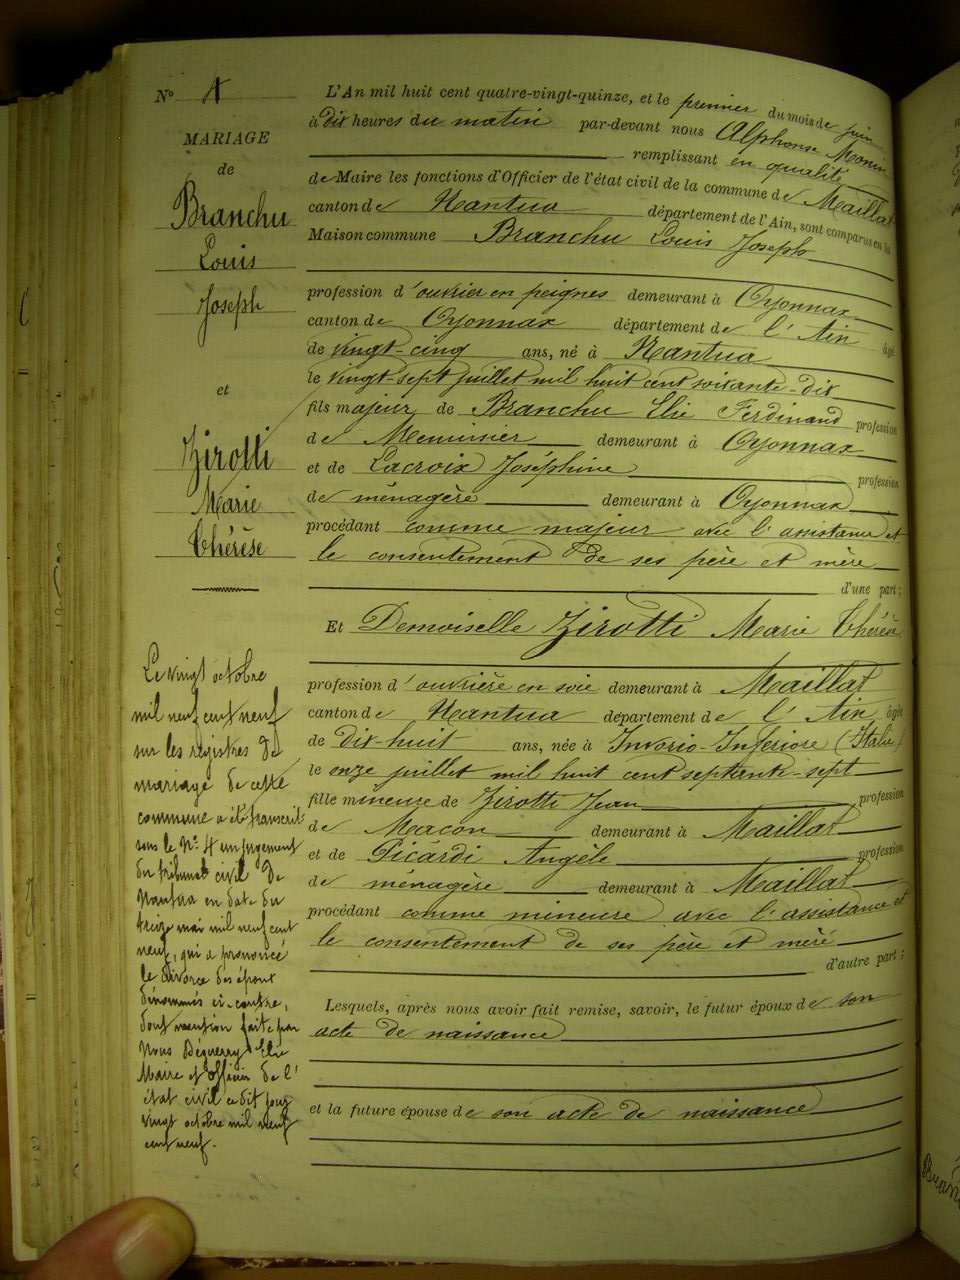 N° 4
MARIAGE
de
Branchu
Louis
Joseph
et
Zirotti
Marie
Thérèse
Le vingt octobre
mil neuf cent neuf
sur les registres de
mariage de cette
commune a été transcrit
sous le N° 4 un jugement
du tribunal civil de
Nantua en date du
treize mai mil neuf cent
neuf, qui a prononcé
le divorce des époux
dénommés ci-contre,
dont mention faite par
Nous Béguerry Elie
Maire et officier de l'
état civil ce dit jour
vingt octobre mil neuf
cent neuf.
L'An mil huit cent quatre-vingt-quinze, et le premier du mois de juin
à dix heures du matin par-devant nous Alphonse Monin
remplissant en qualité
de Maire les fonctions d'Officier de l'état civil de la commune de Maillat
canton de Nantua département de l'Ain, sont comparus en la
Maison commune Branchu Louis Joseph
profession d'ouvrier en peignes demeurant à Oyonnax
canton de Oyonnax département de l'Ain âgé
de vingt-cinq ans, né à Nantua
le vingt-sept juillet mil huit cent soixante-dix
fils majeur de Branchu Elie Ferdinand profession
de Menuisier demeurant à Oyonnax
et de Lacroix Joséphine profession
de ménagère demeurant à Oyonnax
procédant comme majeur avec l'assistance et
le consentement de ses père et mère
d'une part ;
Et Demoiselle Zirotti Marie Thérèse
profession d'ouvrière en soie demeurant à Maillat
canton de Nantua département de l'Ain âgée
de dix-huit ans, née à Invorio-Inferiore (Italie)
le onze juillet mil huit cent septante-sept
fille mineure de Zirotti Jean profession
de Macon demeurant à Maillat
et de Picardi Angèle profession
de ménagère demeurant à Maillat
procédant comme mineure avec l'assistance et
le consentement de ses père et mère
d'autre part ;
Lesquels, après nous avoir fait remise, savoir, le futur époux de son
acte de naissance
et la future épouse de son acte de naissance